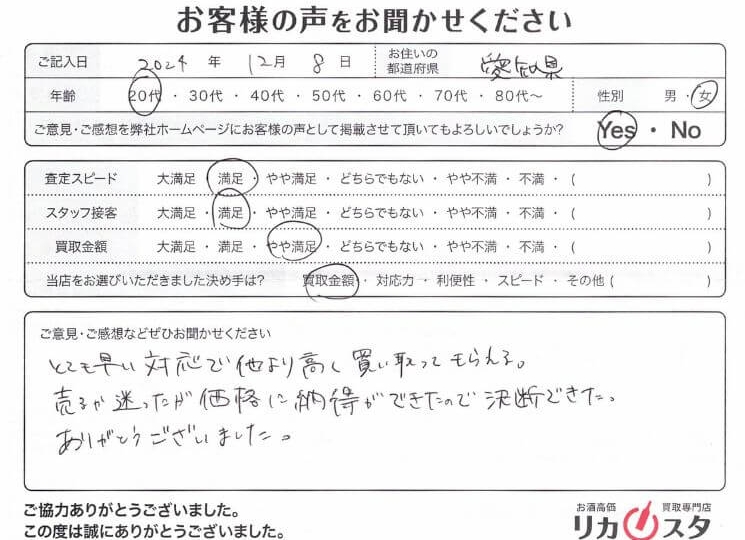 お客様の声をお聞かせください
ご記入日 2024 年 12月 8 日 お住いの都道府県 愛知県
年齢 20代 ・ 30代 ・ 40代 ・ 50代 ・ 60代 ・ 70代 ・ 80代〜 性別 男 ・ 女
ご意見・ご感想を弊社ホームページにお客様の声として掲載させて頂いてもよろしいでしょうか? Yes ・ No
査定スピード 大満足 ・ 満足 ・ やや満足 ・ どちらでもない ・ やや不満 ・ 不満 ・ ( )
スタッフ接客 大満足 ・ 満足 ・ やや満足 ・ どちらでもない ・ やや不満 ・ 不満 ・ ( )
買取金額 大満足 ・ 満足 ・ やや満足 ・ どちらでもない ・ やや不満 ・ 不満 ・ ( )
当店をお選びいただきました決め手は? 買取金額 ・ 対応力 ・ 利便性 ・ スピード ・ その他 ( )
ご意見・ご感想などぜひお聞かせください
とても早い対応で他より高く買い取ってもらえる。
売るか迷ったが価格に納得ができたので決断できた。
ありがとうございました。
ご協力ありがとうございました。
この度は誠にありがとうございました。
お酒高価 買取専門店
リカスタ